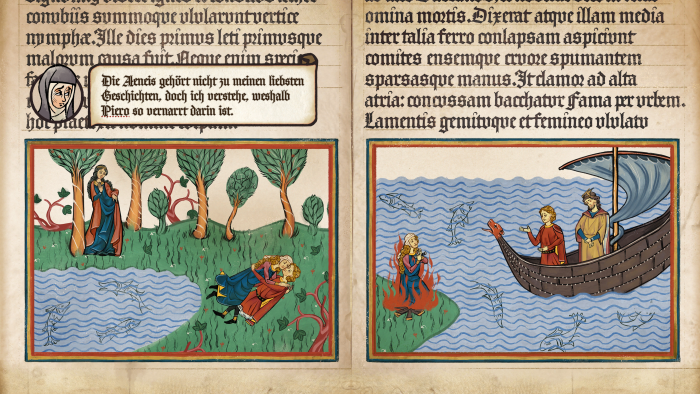 convbiis svmmoqve vlvlarvnt vertice
nympha:.Ille dies primvs leti primvsqve
malorvm cavsa fvit.Neqve enim specie
Die Aeneis gehört nicht zu meinen liebsten
Geschichten, doch ich verstehe, weshalb
Piero so vernarrt darin ist.
omina mortis.Dixerat atqve illam media
inter talia ferro conlapsam aspicivnt
comites ensemqve crvore spvmantem
sparsasqve manvs.It clamor ad alta
atria: concvssam bacchatvr Fama per vrbem.
Lamentis gemitvqve et femineo vlvlatv